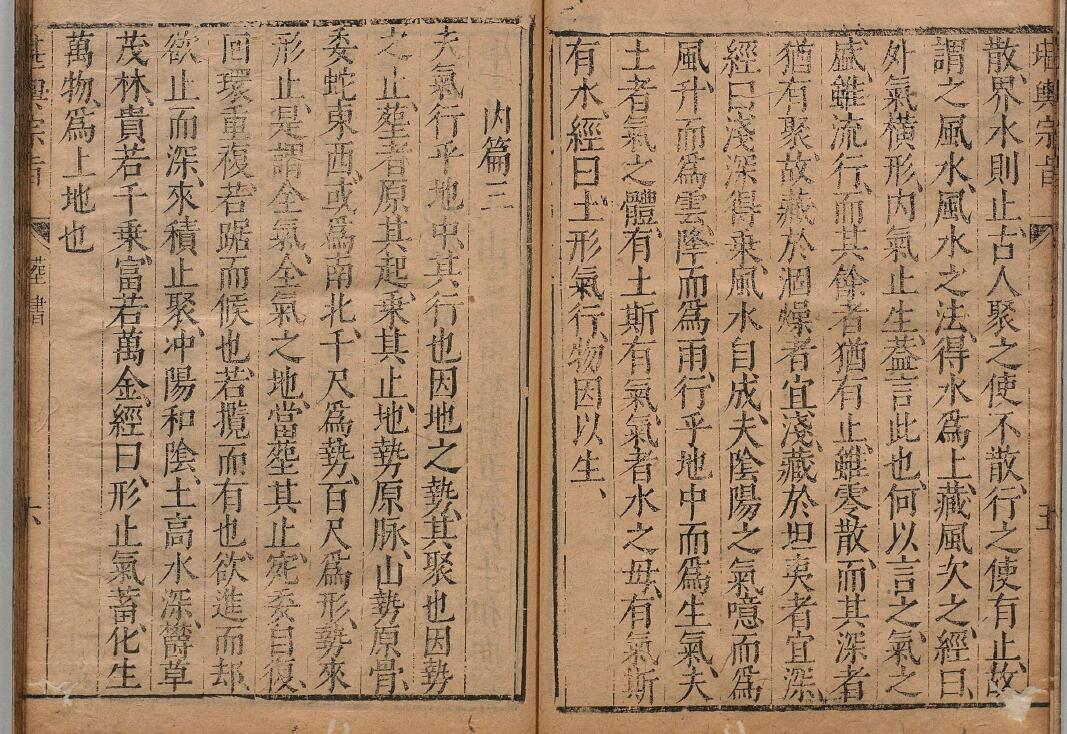 堪輿宗旨
五
散、界水則止、古人聚之使不散、行之使有止、故
謂之風水、風水之法、得水爲上、藏風次之、經曰、
外氣橫形、內氣止生、葢言此也、何以言之、氣之
盛、雖流行、而其餘者猶有止、雖零散、而其深者
猶有聚、故藏於涸燥者宜淺、藏於坦夷者宜深、
經曰淺深得乘、風水自成、夫陰陽之氣、噫而爲
風、升而爲雲、降而爲雨、行乎地中而爲生氣、夫
土者氣之體、有土斯有氣、氣者水之母、有氣斯
有水、經曰、土形氣行、物因以生、
內篇三
夫氣行乎地中、其行也因地之勢、其聚也因勢
之止、塟者原其起、乘其止、地勢原脉、山勢原骨、
委蛇東西、或爲南北、千尺爲勢、百尺爲形、勢來
形止、是謂全氣、全氣之地、當塟其止、宛委自復、
回環重複、若踞而候也、若攬而有也、欲進而却、
欲止而深、來積止聚、冲陽和陰、土高水深、欝草
茂林、貴若千乘、富若萬金、經曰、形止氣蓄、化生
萬物、爲上地也
堪輿宗旨
塟書
六